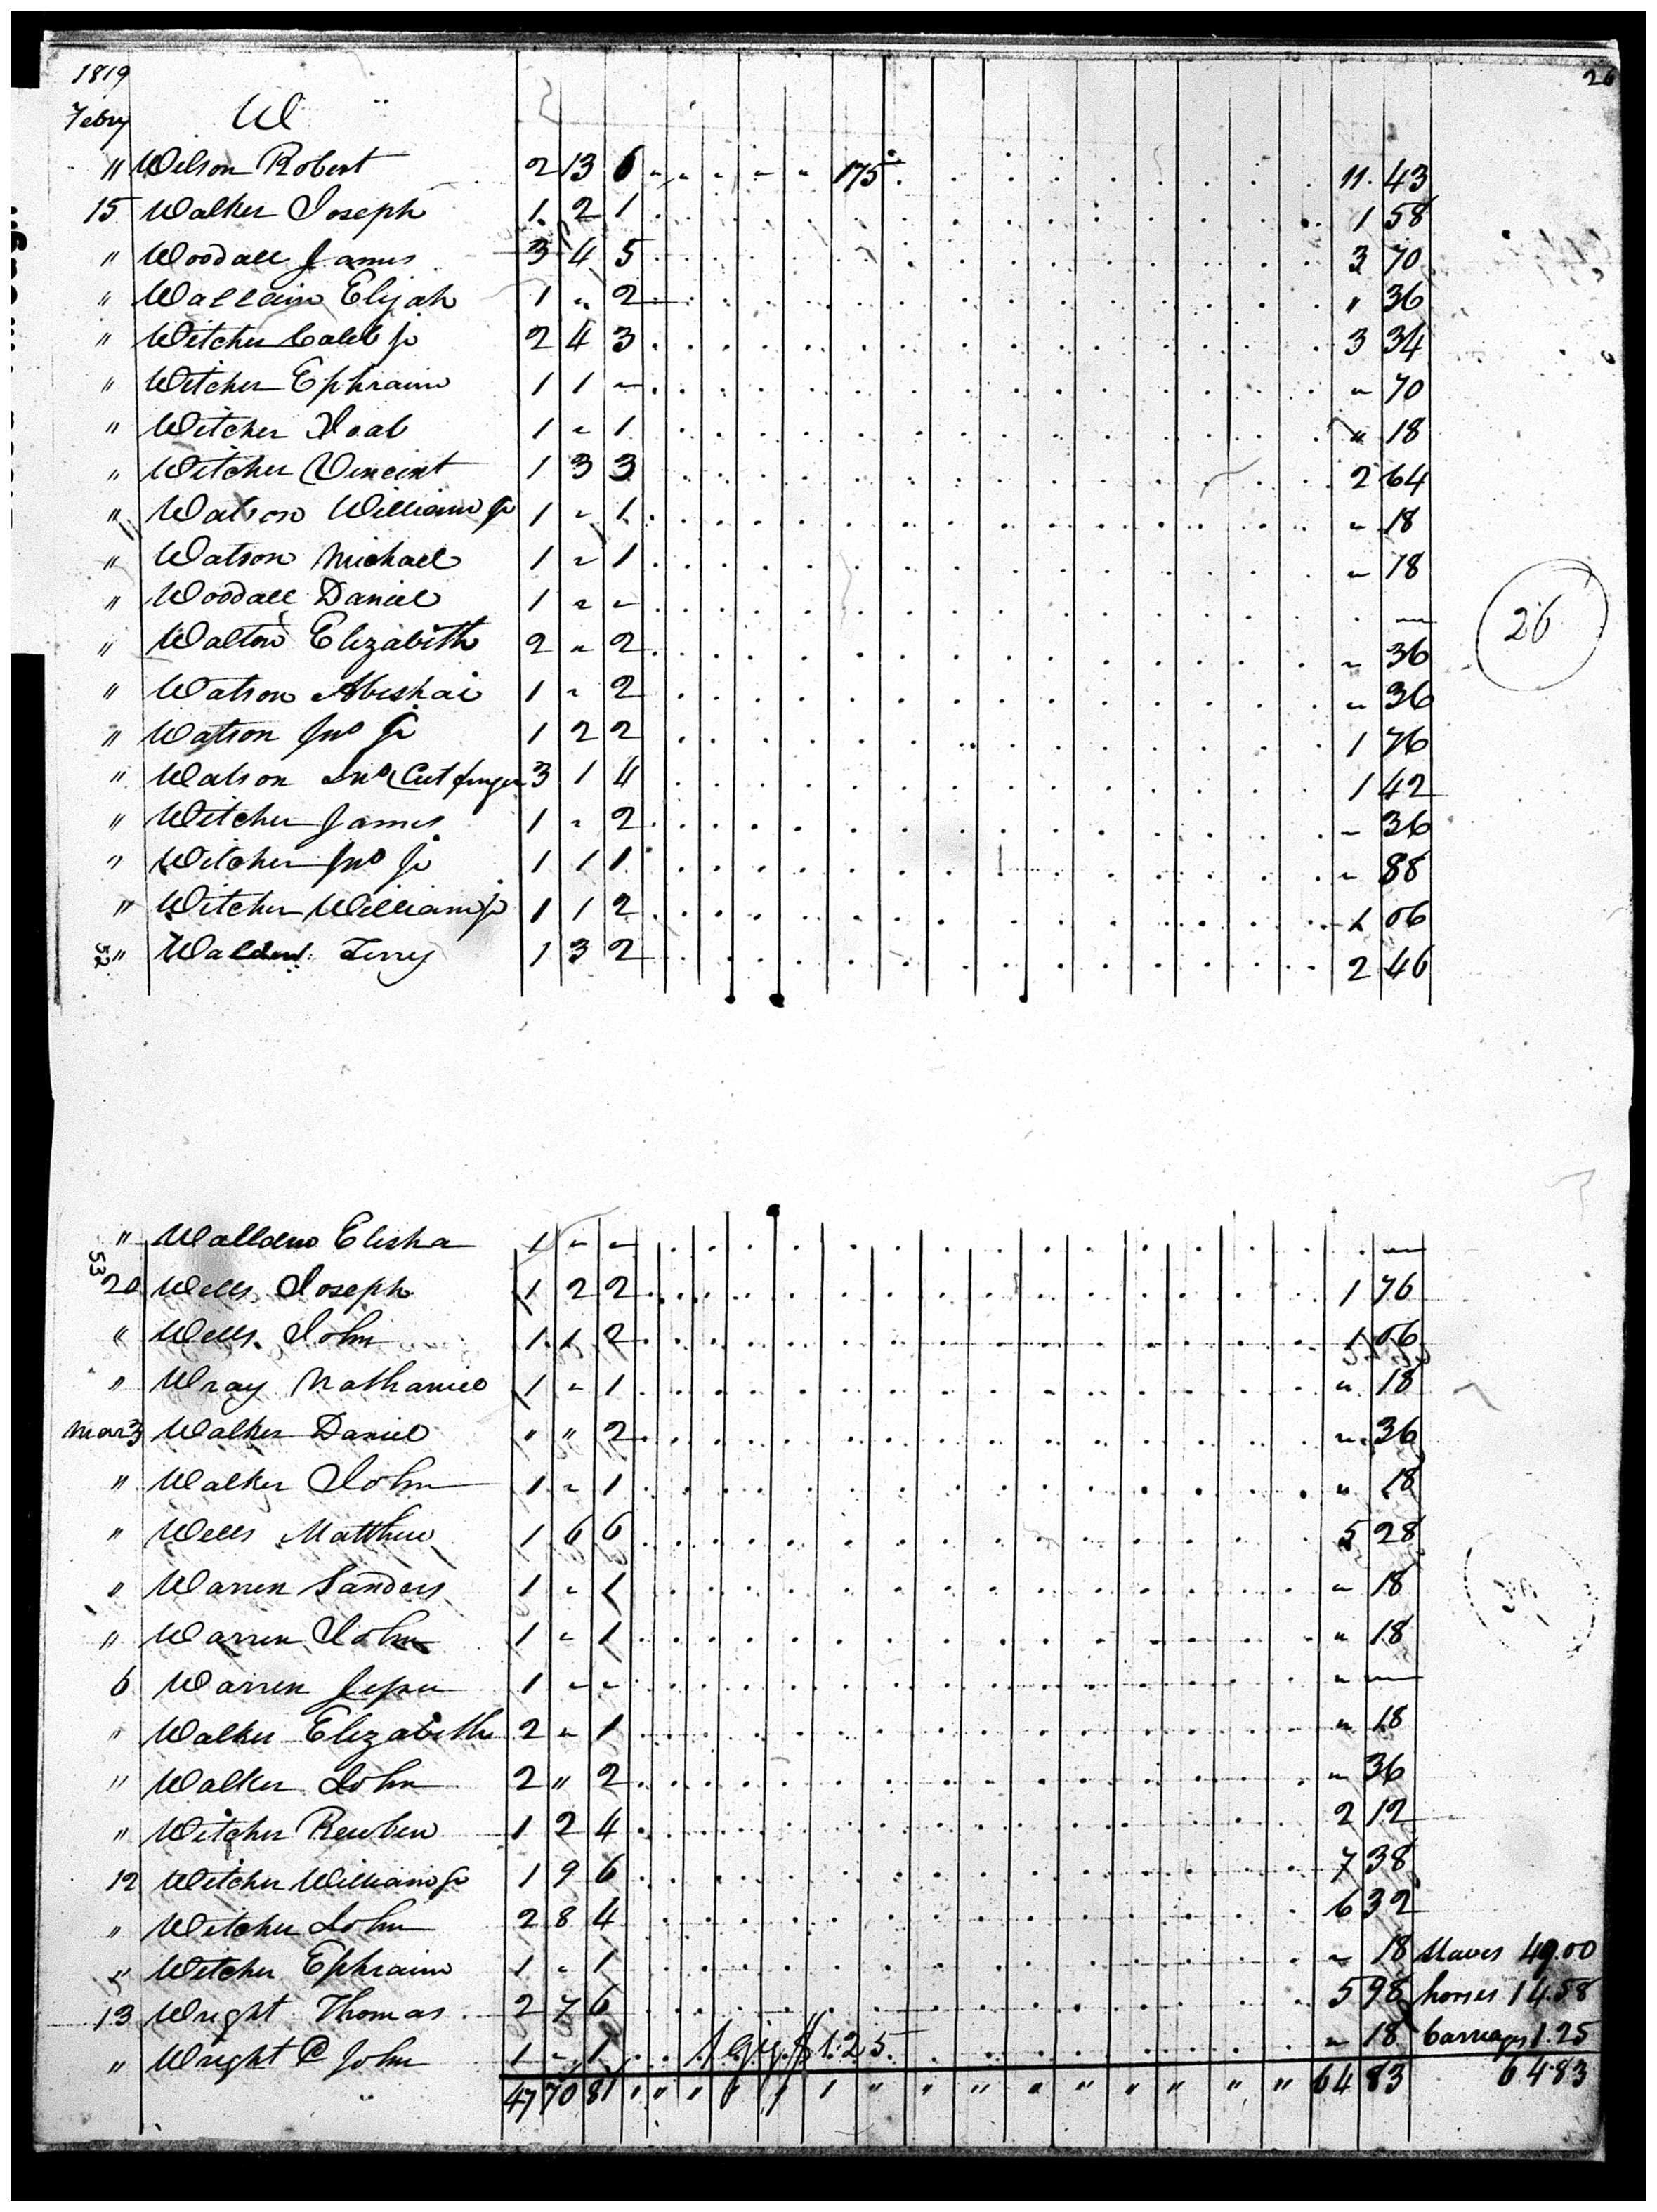 1819 26
Febry W
" Wilson Robert 2 13 6 " " " " " 175 11. 43
15 Walker Joseph 1 2 1 1 58
" Woodall James 3 4 5 3 70
" Elijah 1 " 2 " 36
" Witcher Caleb Jr 2 4 3 3 34
" Witcher Ephraim 1 1 " " 70
" Witcher Joab 1 " 1 " 18
" Witcher Vincent 1 3 3 2 64
" Watson William Jr 1 " 1 " 18
" Watson Michael 1 " 1 " 18
" Woodall Daniel 1 " " —
26
" Walton Elizabeth 2 " 2 " 36
" Watson Abishai 1 " 2 " 36
" Watson Jno Jr 1 2 2 1 76
" Watson Jno (Cut finger 3 1 4 1 42
" Witcher James 1 " 2 " 36
" Witcher Jno Jr 1 1 1 " 88
" Witcher William Jr 1 1 2 1 06
52 " Walden Terry 1 3 2 2 46
" Wallden Elisha 1 " " —
53
20 Wells Joseph 1 2 2 1 76
" Wells John 1 1 2 1 06
" Wray Nathaniel 1 " 1 " 18
Mar 3 Walker Daniel " " 2 " 36
" Walker John 1 " 1 " 18
" Wells Matthew 1 6 6 5 28
" Warren Sanders 1 " 1 " 18
" Warren John 1 " 1 " 18
6 Warren Jesse 1 " " " —
" Walker Elizabeth 2 " 1 " 18
" Walker John 2 " 2 " 36
" Witcher Reuben 1 2 4 2 12
12 Witcher William Jr 1 9 6 7 38
" Witcher John 2 8 4 6 32
" Witcher Ephraim 1 " 1 " 18 Slaves 49.00
13 Wright Thomas 2 7 6 5 98 horses 14.58
" Wright John 1 " 1 1 gig $1.25 " 18 Carriages 1.25
47 70 81 " " " " " " " " " " " " " " " 64 83 64.83